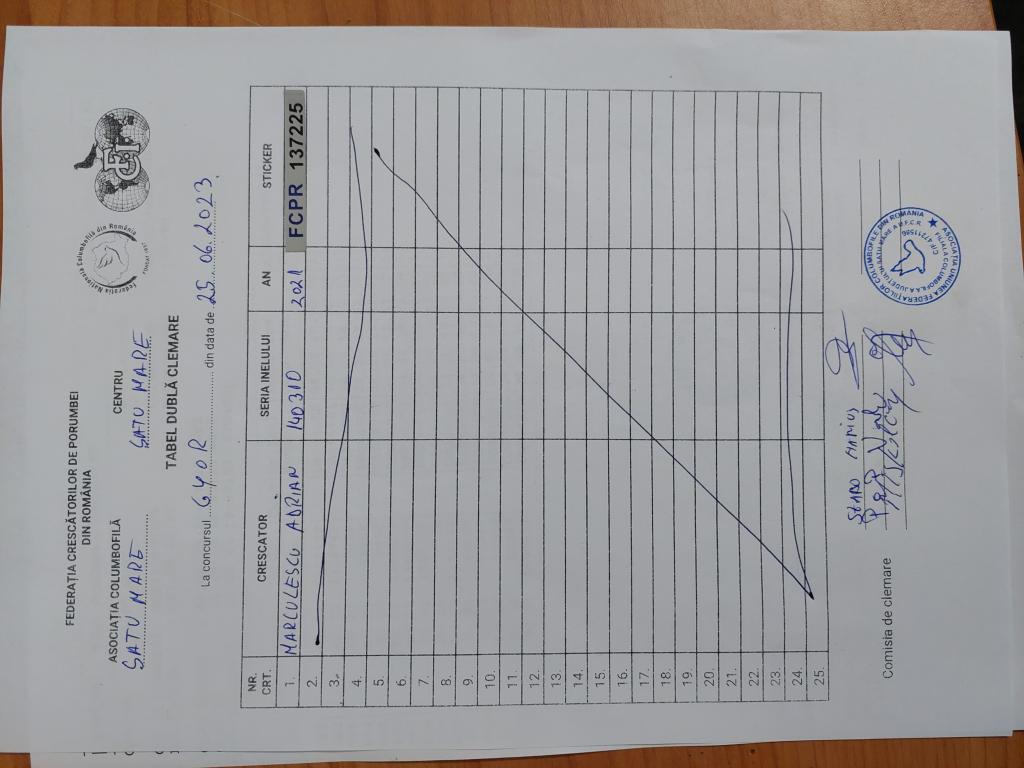 FEDERAȚIA CRESCĂTORILOR DE PORUMBEI
DIN ROMÂNIA
Federația Națională Columbofilă din România
FCI
ASOCIAȚIA COLUMBOFILĂ CENTRU
SATU MARE SATU MARE
TABEL DUBLĂ CLEMARE
La concursul GYOR din data de 25.06.2023.
NR. CRT. CRESCATOR SERIA INELULUI AN STICKER
1. MARCULESCU ADRIAN 140310 2021 FCPR 137225
2.
3.
4.
5.
6.
7.
8.
9.
10.
11.
12.
13.
14.
15.
16.
17.
18.
19.
20.
21.
22.
23.
24.
25.
SZABO MARIUS
Comisia de clemare
ASOCIAȚIA UNIUNEA FEDERAȚIILOR COLUMBOFILE DIN ROMANIA
FILIALA COLUMBOFILA JUDEȚEANA SATU MARE A U.F.C.R.